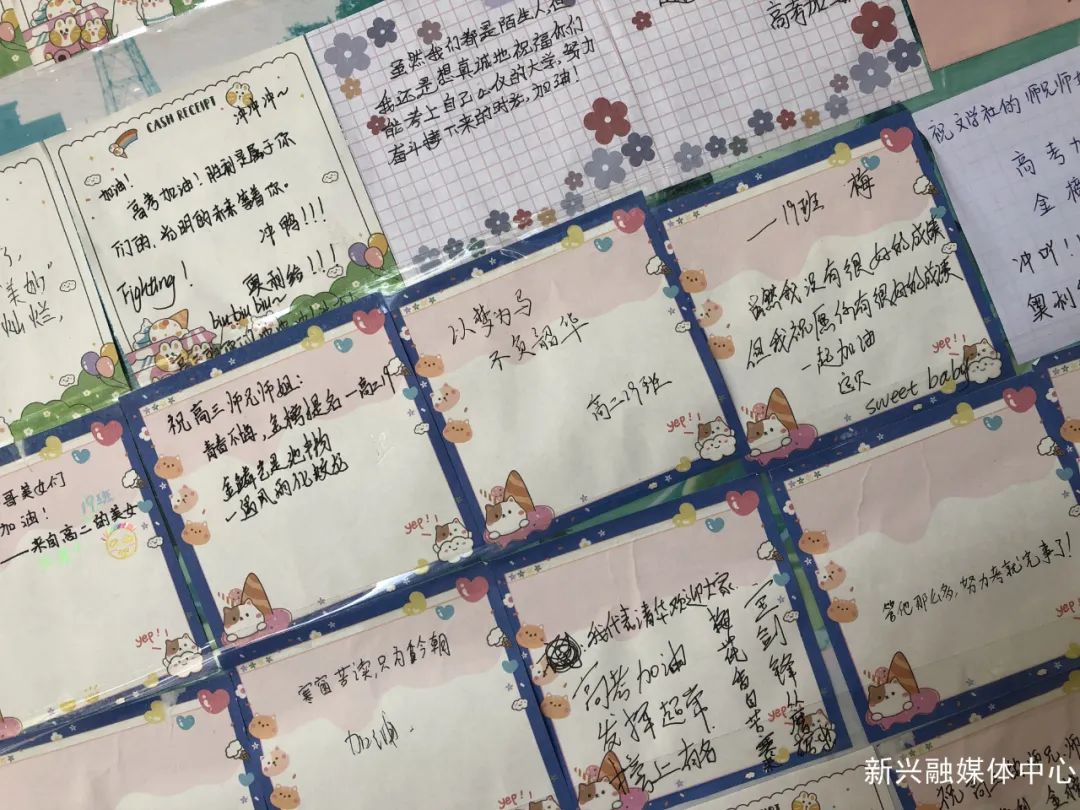 虽然我们都是陌生人但
我还是想真诚地祝福你们
能考上自己心仪的大学,努力
奋斗接下来的时光,加油!
高考加油
CASH RECEIPT
冲冲冲~
加油!
高考加油!胜利是属于你
们的,光明的未来等着你。
冲鸭!!!
Fighting!
奥利给!!!
biu biu biu~
灿烂,
祝文学社的师兄师
高考加
金榜
冲吖!
奥利
一19班 梅
虽然我没有很好的成绩
但我祝愿你有很好的成绩
一起加油
sweet baby
yep!
以梦为马
不负韶华
高二19班
yep!
祝高三师兄师姐:
青春不悔,金榜提名一高二19
金鳞岂是池中物
一遇风雨化蛟龙
yep!
哥美女们
加油!
19班
——来自高二的美女
yep!
寒窗苦读,只为今朝
加油.
yep!
我代表清华欢迎大家
高考加油
发挥超常
榜上有名
王剑锋从磨砺出
梅花香自苦寒来
yep!
管他那么多,努力考就完事了!
yep!
祝高
新兴融媒体中心